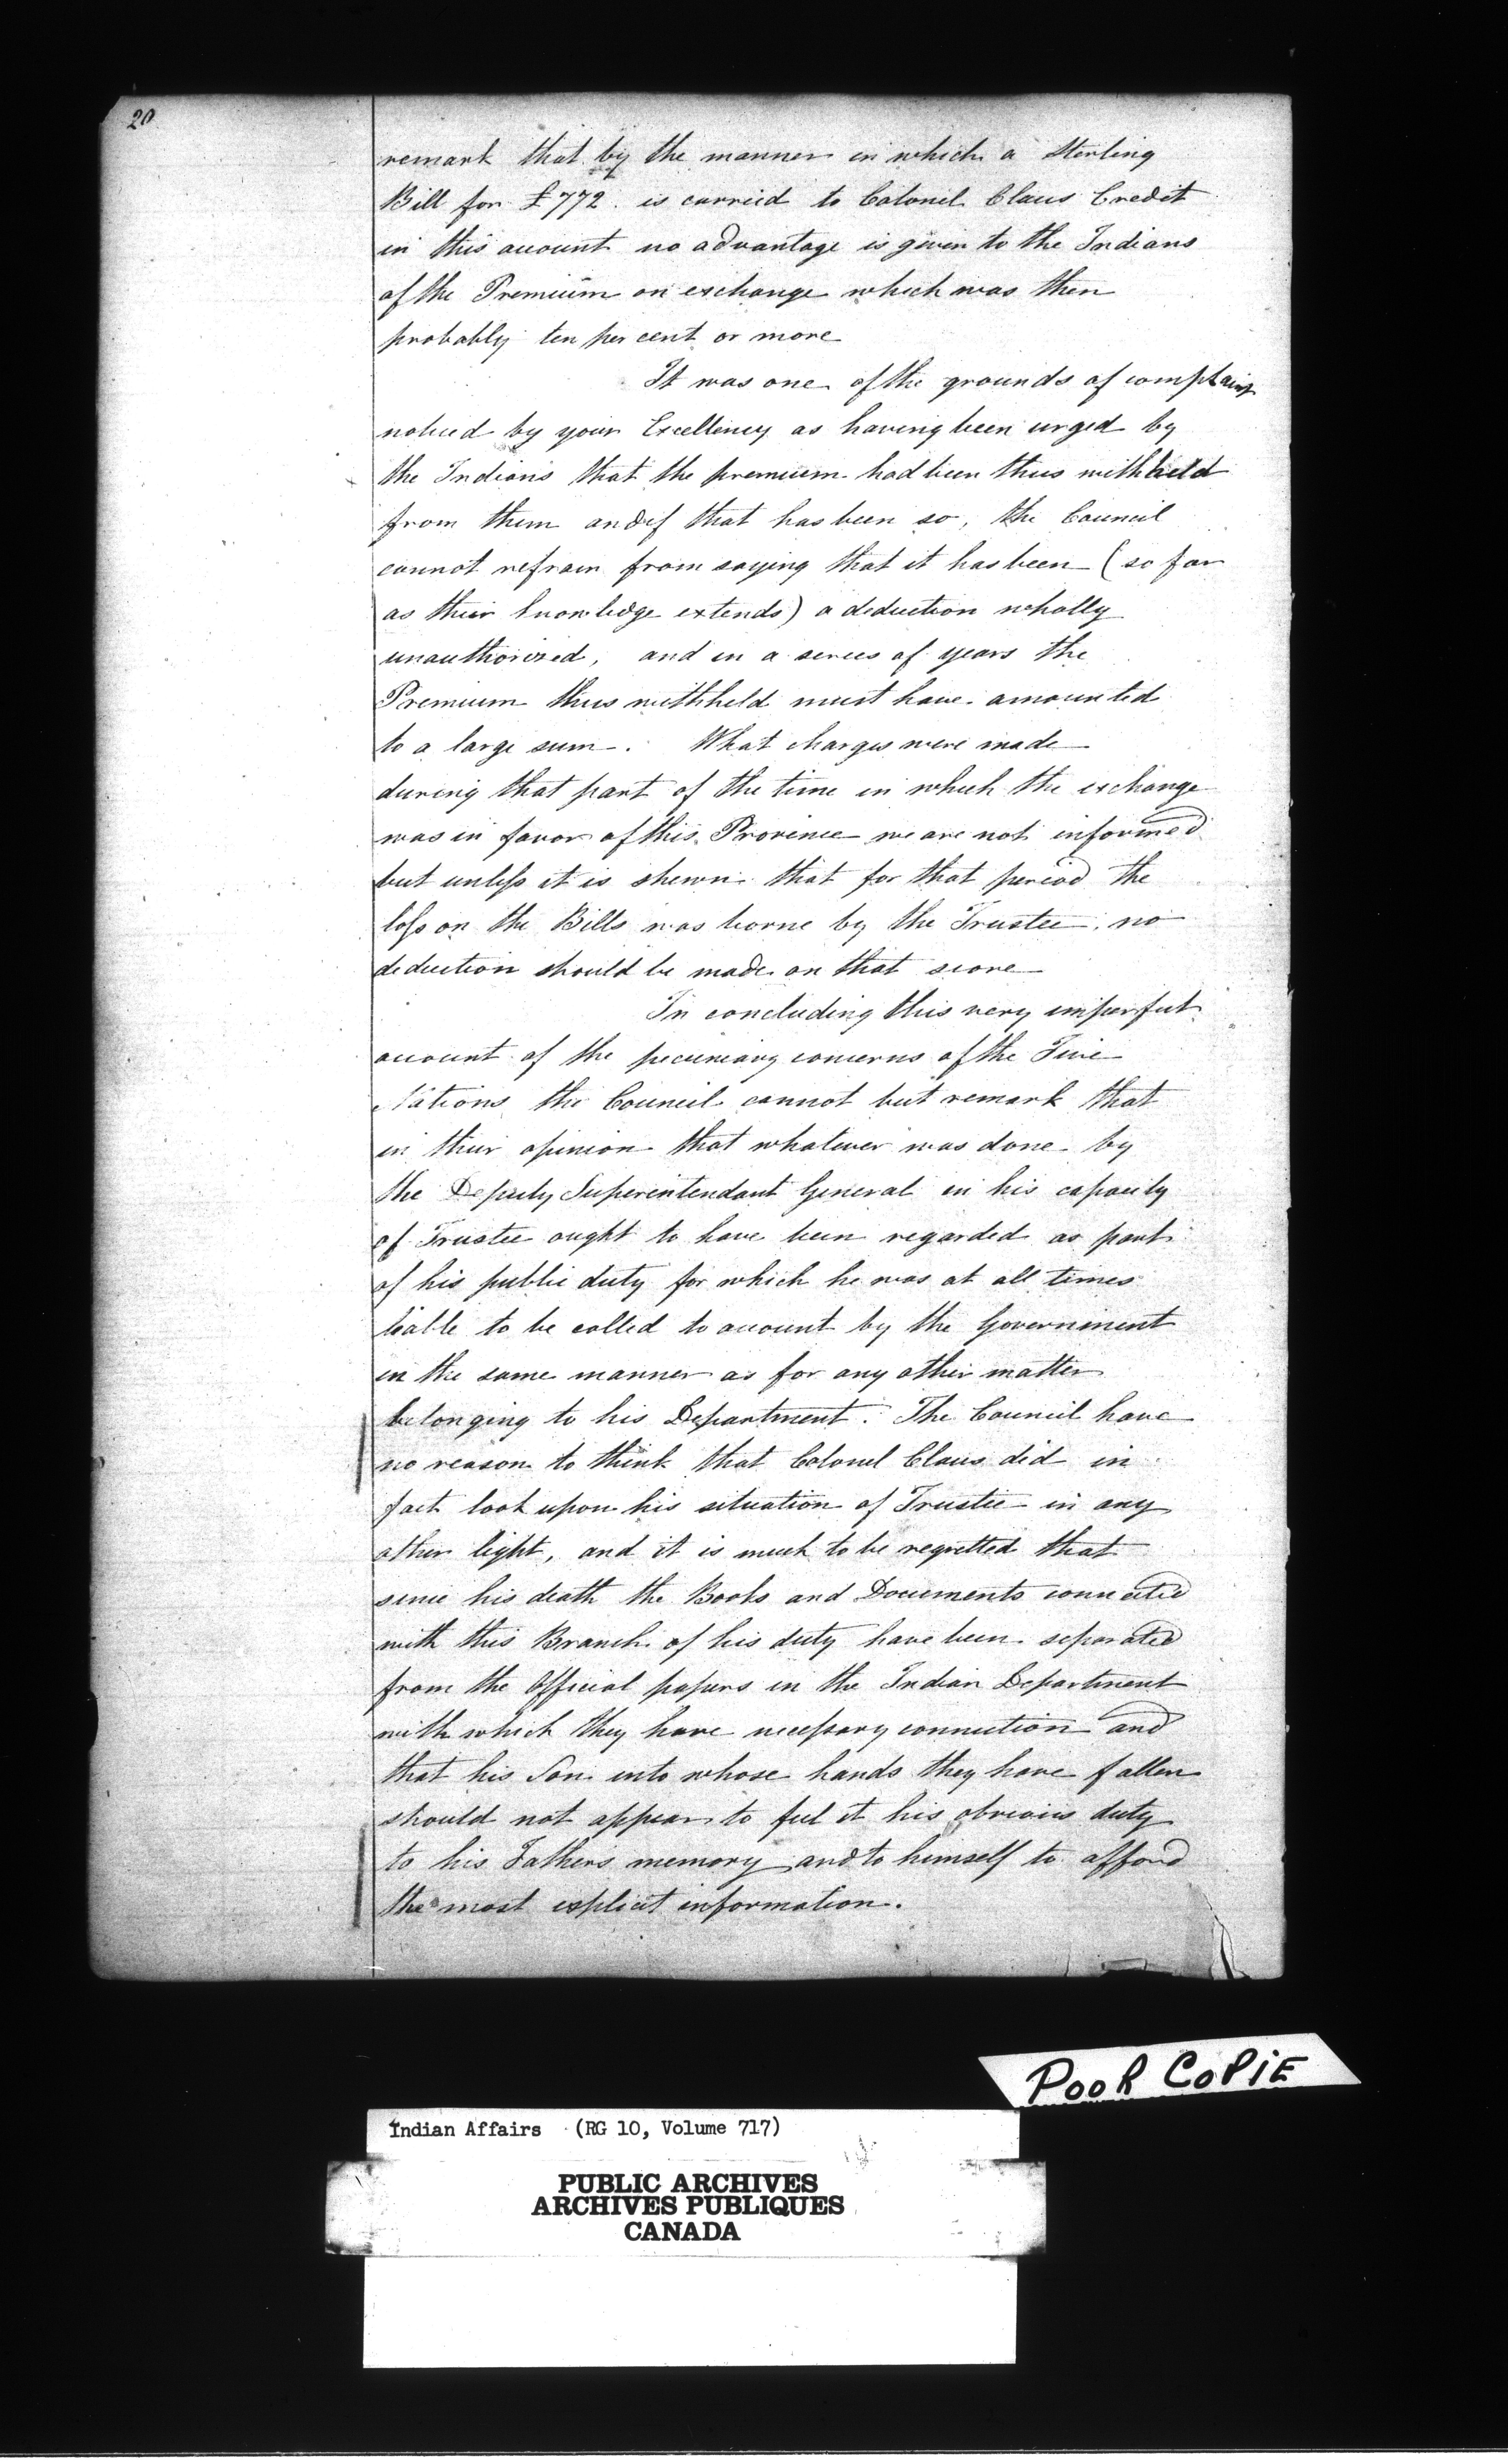 20
remark that by the manner in which a Sterling
Bill for £772. is carried to Colonel Claus Credit
in this account no advantage is given to the Indians
of the Premium on exchange which was then
probably ten per cent or more
It was one of the grounds of complaint
noticed by your Excellency as having been urged by
the Indians that the premium had been thus withheld
from them and if that has been so, the Council
cannot refrain from saying that it has been (so far
as their knowledge extends) a deduction wholly
unauthorized, and in a series of years the
Premium thus withheld must have amounted
to a large sum. What charges were made
during that part of the time in which the exchange
was in favor of this Province we are not informed
but unless it is shewn that for that period the
loss on the Bills was borne by the Trustee, no
deduction should be made on that score
In concluding this very imperfect
account of the pecuniary concerns of the Five
Nations the Council cannot but remark that
in their opinion that whatever was done by
the Deputy Superintendant General in his capacity
of Trustee ought to have been regarded as part
of his public duty for which he was at all times
liable to be called to account by the Government
in the same manner as for any other matter
belonging to his Department. The Council have
no reason to think that Colonel Claus did in
fact look upon his situation of Trustee in any
other light, and it is much to be regretted that
since his death the Books and Documents connected
with this Branch of his duty have been separated
from the Official papers in the Indian Department
with which they have necessary connection and
that his Son into whose hands they have fallen
should not appear to feel it his obvious duty
to his Fathers memory and to himself to afford
the most explicit information.
POOR COPIE
Indian Affairs (RG 10, Volume 717)
PUBLIC ARCHIVES
ARCHIVES PUBLIQUES
CANADA